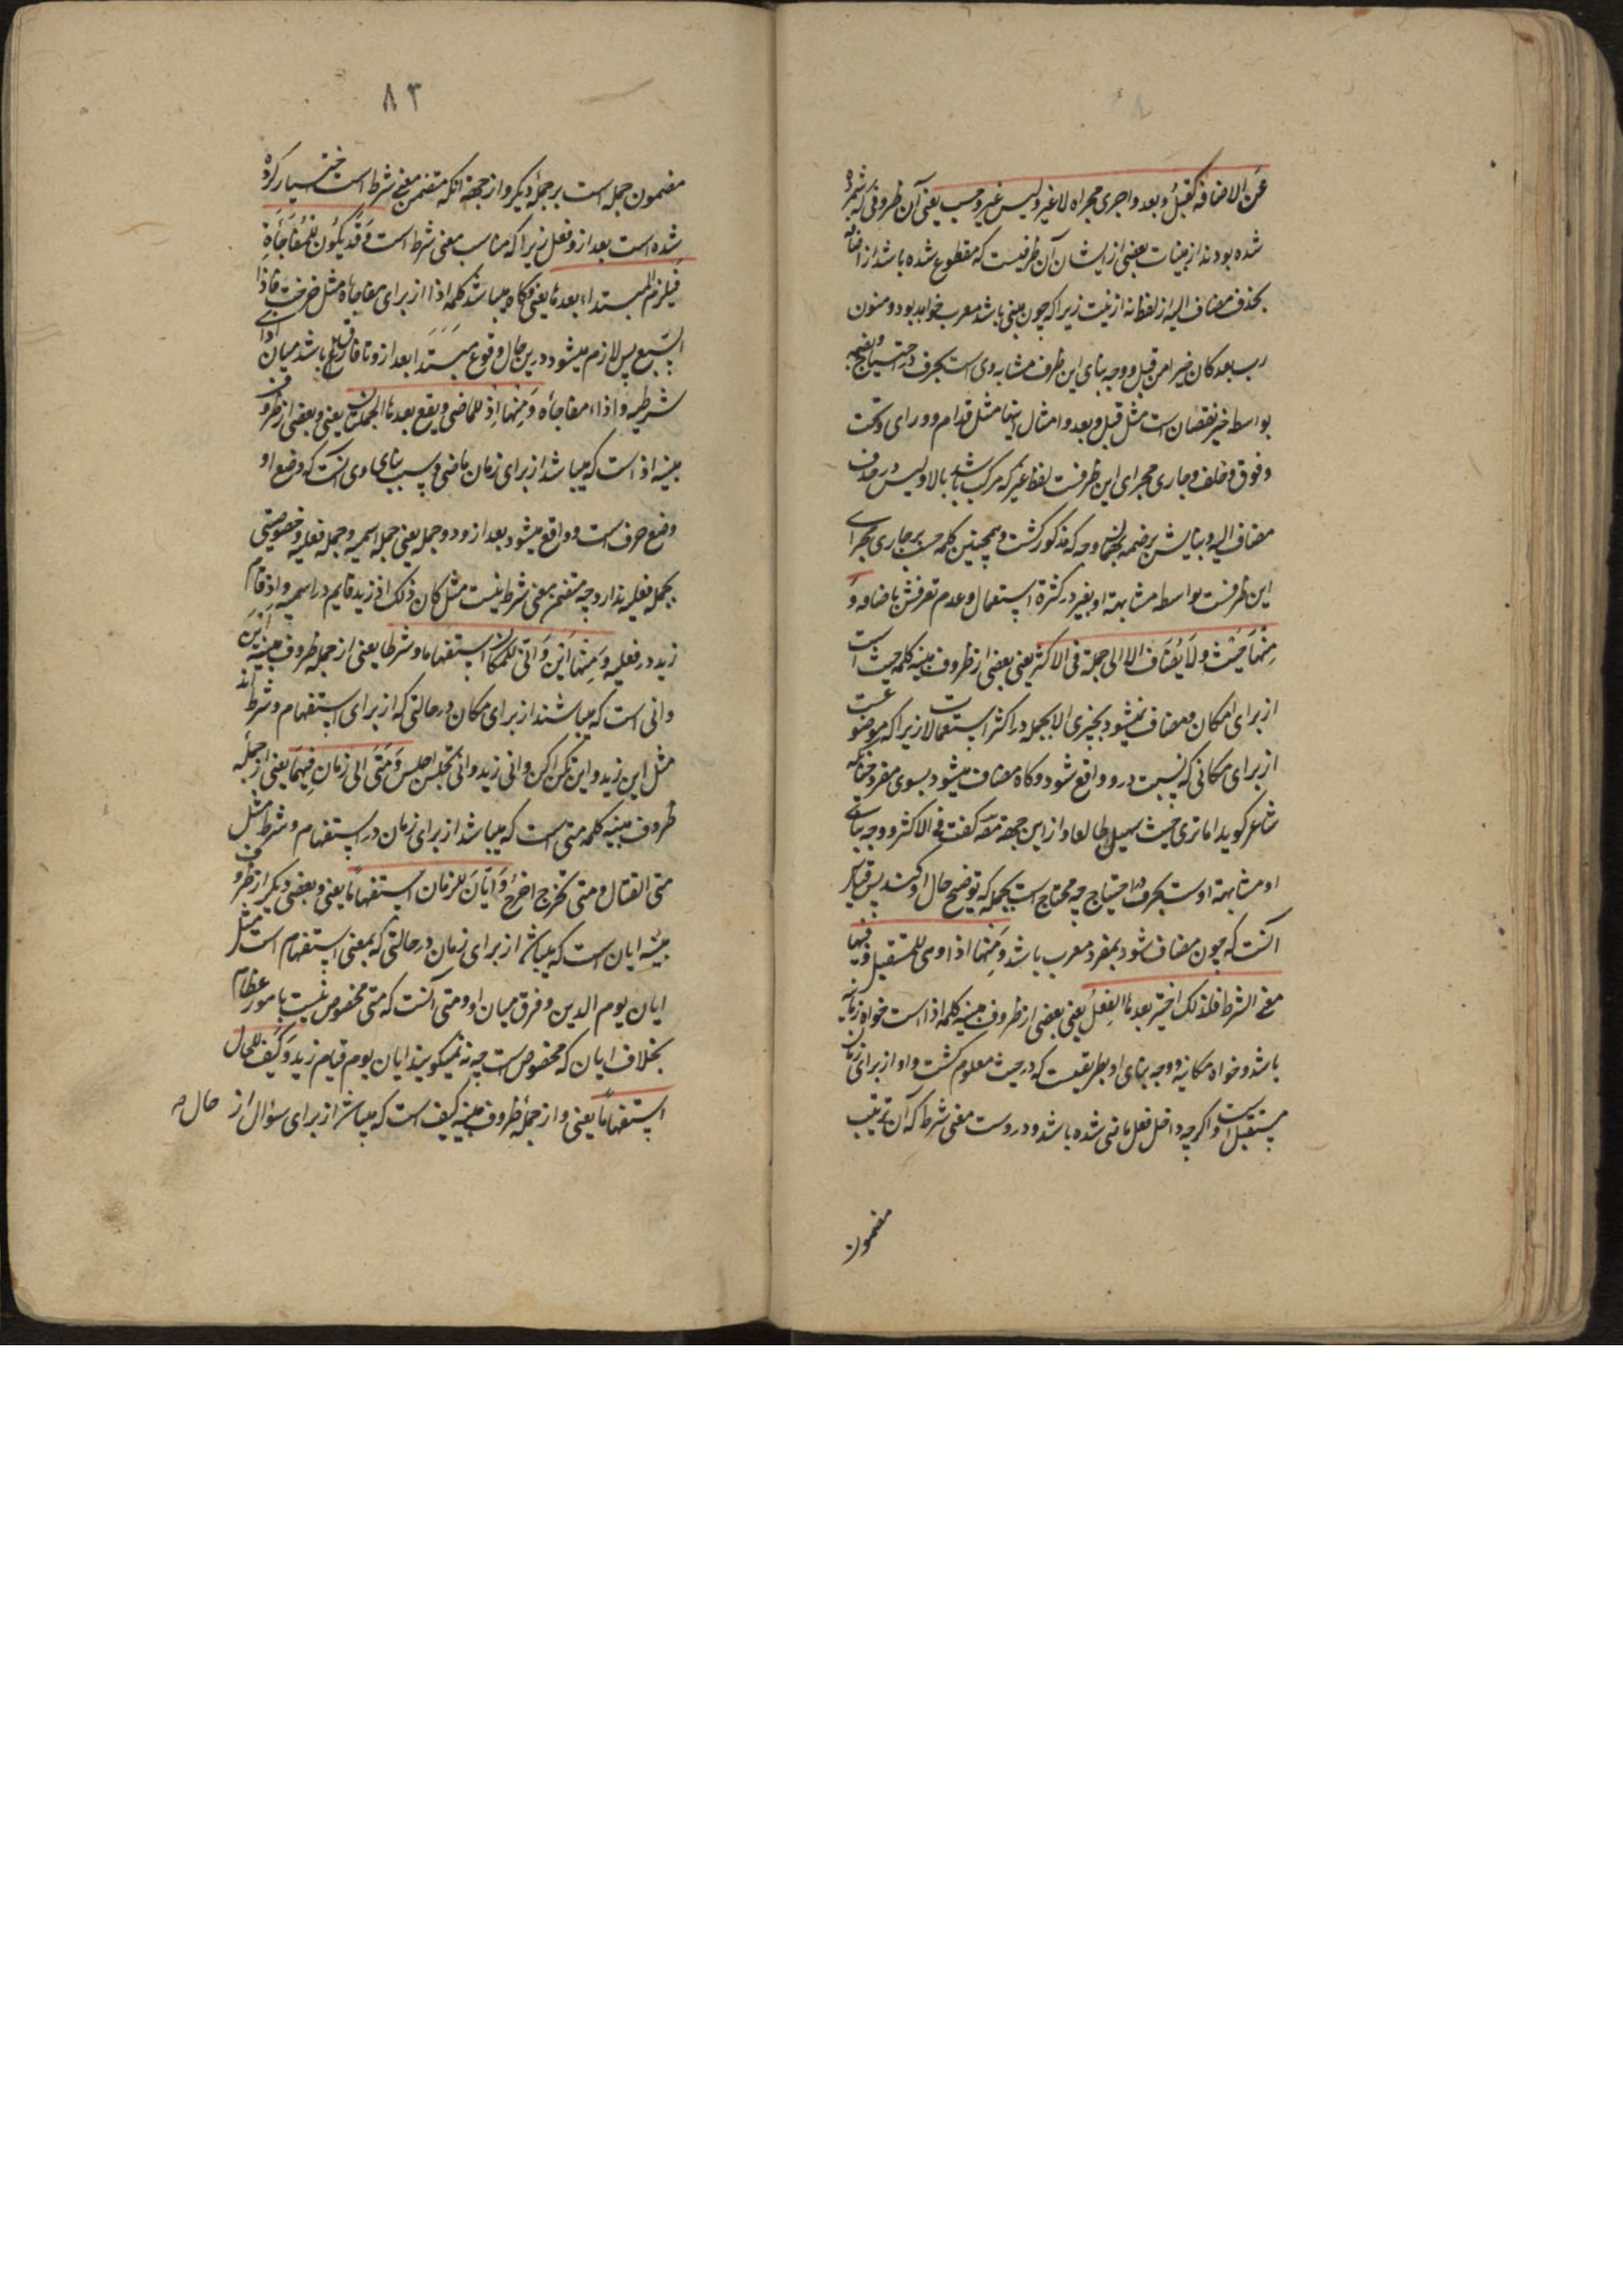 عن الاضافة کقبل و بعد و اجری مجراه لا غیر و لیس غیر و حسب یعنی آن ظروفی که شمرده
شده بودند از مبنیات بعضی از ایشان آن ظرفیست که مقطوع شده باشد از اضافه
بحذف مضاف الیه از لفظ نه از نیت زیرا که چون مبنی باشد معرب خواهد بود و منون
رب بعد کان خیرا من قبل و وجه بنای این ظرف مشابه وی است بحرف در احتیاج و بضمه
بواسطه خبر نقصان است مثل قبل و بعد و امثال اینها مثل قدام و ورای و تحت
و فوق و خلف و جاری مجرای این ظرفست لفظ غیر که مرکب باشد بالا و لیس در حذف
مضاف الیه و بنایش بر ضمه بهمان وجه که مذکور گشت و همچنین کلمه حسب بر جاری مجرای
این ظرفست بواسطه مشابهة او بغیر در کثرة استعمال و عدم تعرفش باضافه و
منها حیث و لا یضاف الا الی جملة فی الاکثر یعنی بعضی از ظروف مبنیه کلمه حیث است
از برای امکان و مضاف نمیشود بچیزی الا بجمله در اکثر استعمالات زیرا که موضوعست
از برای مکانی که نسبت درو واقع شود و گاه مضاف میشود بسوی مفرد چنانکه
شاعر گوید اما تری حیث سهیل طالعا و از این جهة مصه گفت فی الاکثر و وجه بنای
او مشابهة اوست بحرف در احتیاج چه محتاج است بجمله که توضیح حال او کند پس قیاس
آنست که چون مضاف شود بمفرد معرب باشد و منها اذا و هی للمستقبل و فیها
معنی الشرط فلذلک اختیر بعدها الفعل یعنی بعضی از ظروف مبنیه کلمه اذا است خواه زمانیه
باشد و خواه مکانیه و وجه بنای او بطریقیست که در حیث معلوم گشت و او از برای زمان
مستقبل است و اگرچه داخل فعل ماضی شده باشد و دروست معنی شرط که آن ترتیب
مضمون
۸۳
مضمون جمله است بر جملهٔ دیگر و از جهة آنکه متضمن معنی شرط است اختیار کرده
شده است بعد از و فعل زیرا که مناسب معنی شرط است و قد یکون للمفاجأة
فیلزم المبتداء بعدها یعنی و گاه میباشد کلمه اذا از برای مفاجاة مثل خرجت فاذا
السبع پس لازم میشود درین حال وقوع مبتدا بعد از و تا فارق باشد میان اذای
شرطیه و اذاء مفاجأه و منها اذ للماضی و یقع بعدها الجملتان یعنی و بعضی از ظروف
مبنیه اذ است که میباشد از برای زمان ماضی و سبب بنای وی آنست که وضع او
وضع حرف است و واقع میشود بعد از و دو جمله یعنی جمله اسمیه و جمله فعلیه و خصوصیتی
بجمله فعلیه ندارد چه متضمن معنی شرط نیست مثل کان ذلک اذ زید قایم در اسمیه و اذ قام
زید در فعلیه و منها این و انی للمکان استفهاما و شرطا یعنی از جمله ظروف مبنیه این
و انی است که میباشند از برای مکان در حالتی که از برای استفهام و شرط اند
مثل این زید و این تکن اکن و انی زید و انی تجلس اجلس و متی الی زمان فیهما یعنی از جمله
ظروف مبنیه کلمه متی است که میباشد از برای زمان در استفهام و شرط مثل
متی القتال و متی تخرج اخرج و ایان للزمان استفهاما یعنی و بعضی دیگر از ظروف
مبنیه ایان است که میباشد از برای زمان در حالتی که بمعنی استفهام است مثل
ایان یوم الدین و فرق میان او و متی آنست که متی مخصوص نیست بامور عظام
بخلاف ایان که مخصوص است چه نمیگویند ایان یوم قیام زید و کیف للحال
استفهاما یعنی و از جملهٔ ظروف مبنیه کیف است که میباشد از برای سؤال از حال